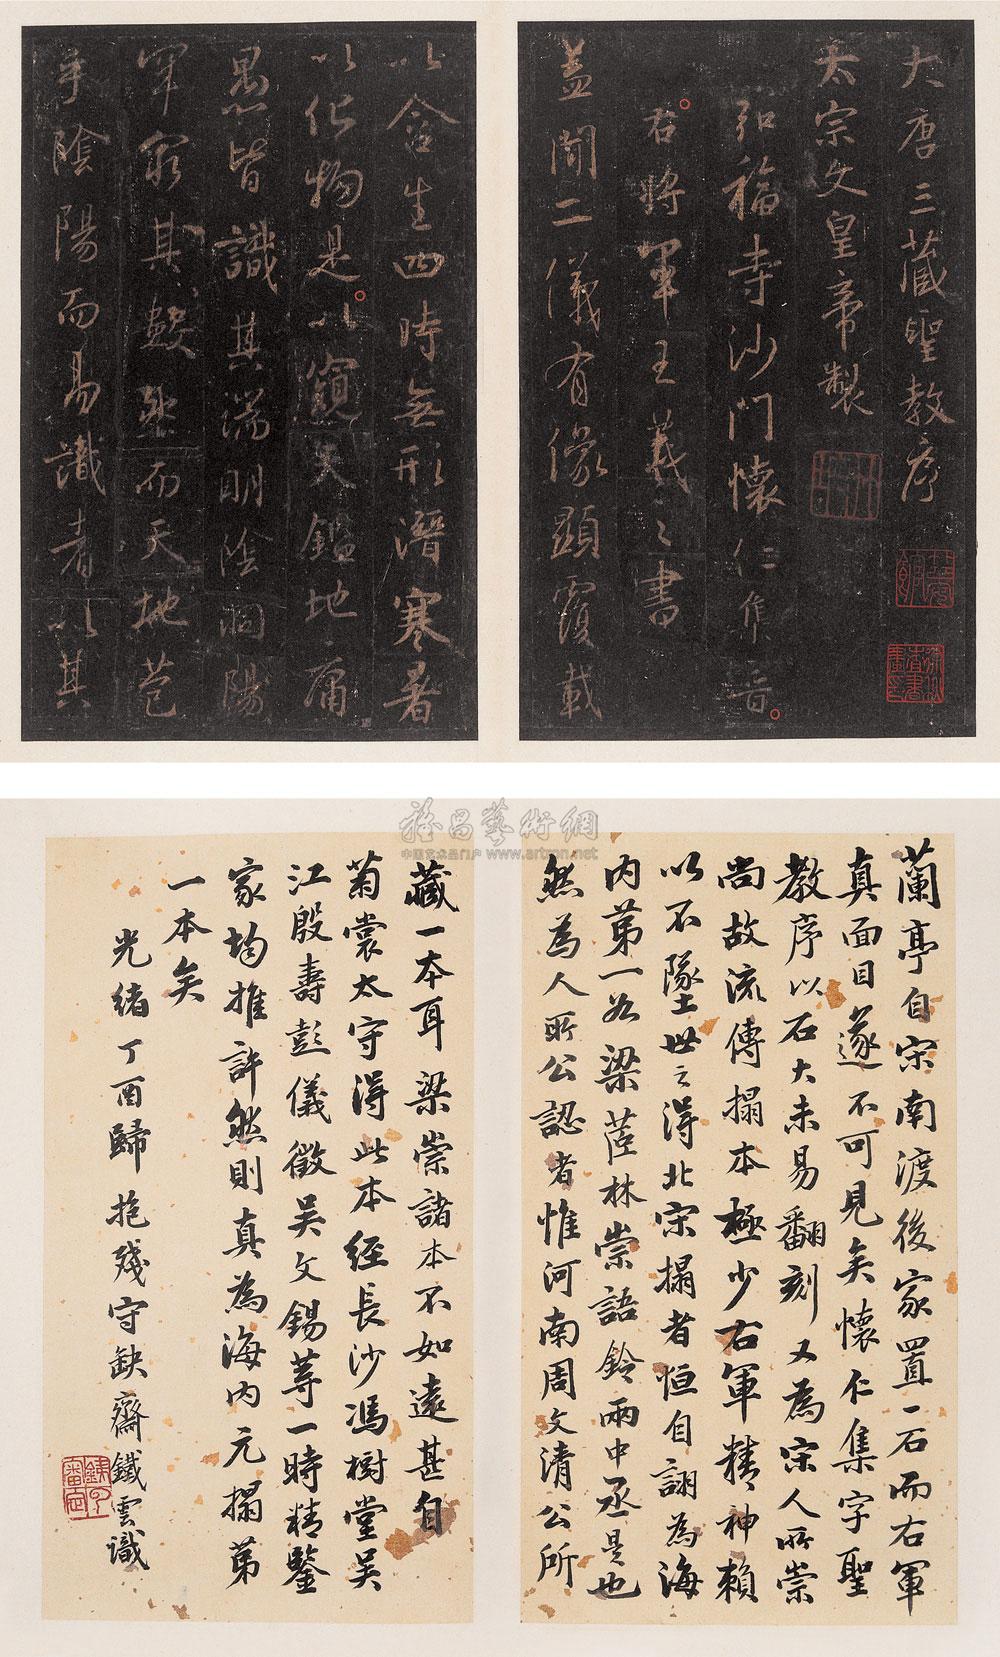 大唐三藏聖教序
太宗文皇帝製
弘福寺沙門懷仁集晉
右將軍王羲之書
蓋聞二儀有像顯覆載
以含生四時無形潛寒暑
以化物是以窺天鑑地庸
愚皆識其端明陰洞陽
罕窮其數然而天地苞
乎陰陽而易識者以其
雅昌藝術網
中国艺术品门户 www.artron.net
蘭亭自宋南渡後家置一石而右軍
真面目遂不可見矣懷仁集字聖
教序以石大未易翻刻又為宋人所崇
尚故流傳搨本極少右軍精神賴
以不墜世之得北宋搨者恒自詡為海
内第一若梁茝林崇語鈴兩中丞是也
然為人所公認者惟河南周文清公所
藏一本耳梁崇諸本不如遠甚自
菊裳太守得此本經長沙馮樹堂吳
江殷壽彭儀徵吳文錫等一時精鑒
家均推許然則真為海内元搨第
一本矣
光緒丁酉歸抱殘守缺齋鐵雲識